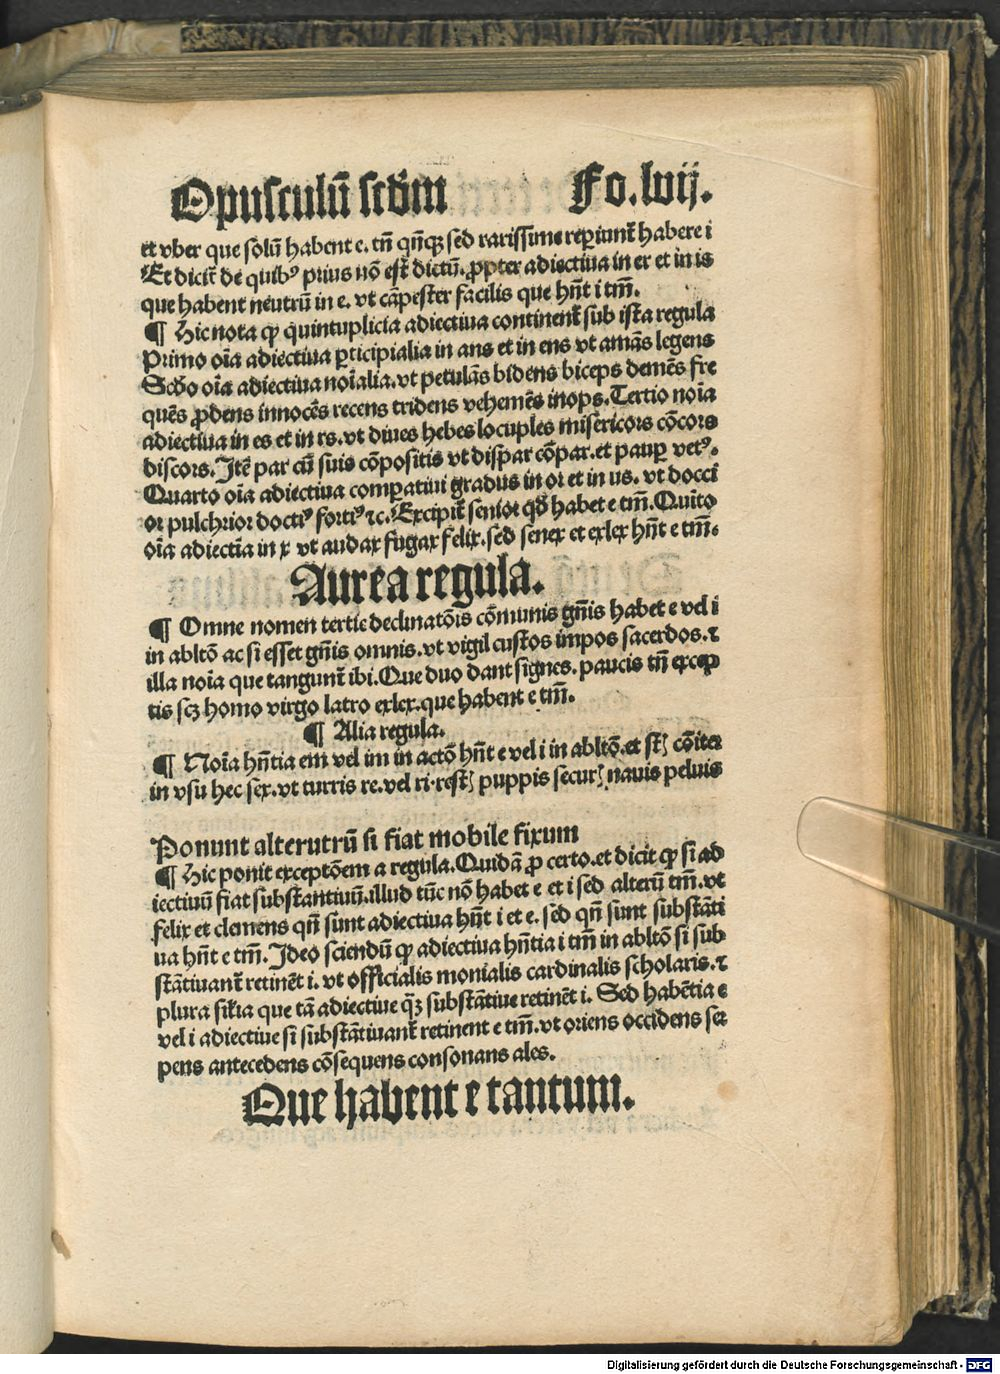 Opusculū scd̄m Fo.lvij.
et vber que solū habent e. tñ qñqꝫ sed rarissime reperiunt̄ habere i
Et dicit̄ de quibꝰ prius nō est̄ dictū. ꝓpter adiectiua in er et in is
que habent neutrū in e. vt cāpester facilis que hn̄t i tm̄.
¶ Hic nota ꝙ quintuplicia adiectiua continent̄ sub ista regula
Primo oīa adiectiua ꝑticipialia in ans et in ens vt amās legens
Scd̄o oīa adiectiua noīalia.vt petulās bidens biceps demēs fre
quēs ꝓdens innocēs recens tridens vehemēs inops.Tertio noīa
adiectiua in es et in rs.vt diues hebes locuples misericors cōcors
discors.Itē par cū suis cōpositis vt disꝑar cōpar.et pauꝑ vetꝰ.
Quarto oīa adiectiua comꝑatiui gradus in or et in us. vt docci
or pulchrior doctiꝰ fortiꝰ ⁊c.Excipit̄ senior qd̄ habet e tm̄.Quīto
oīa adiectīa in x vt audax fugax felix.sed senex et exlex hn̄t e tm̄.
Aurea regula.
¶ Omne nomen tertie declinatōis cōmunis gn̄is habet e vel i
in abltō ac si esset gn̄is omnis.vt vigil custos impos sacerdos.⁊
illa noīa que tangunt̄ ibi.Que duo dant signes. paucis tñ excep
tis scꝫ homo virgo latro exlex.que habent e tm̄.
¶ Alia regula.
¶ Noīa hn̄tia em vel im in actō hn̄t e vel i in abltō.et st̄ cōiter
in vsu hec sex.vt turris re.vel ri.rest̄ puppis secur̄ nauis peluis
Ponunt alterutrū si fiat mobile fixum
¶ Hic ponit exceptōem a regula.Quidā ꝓ certo.et dicit ꝙ si ad
iectiuū fiat substantiuū.illud tūc nō habet e et i sed alterū tm̄.vt
felix et clemens qñ sunt adiectiua hn̄t i et e. sed qñ sunt substāti
ua hn̄t e tm̄.Ideo sciendū ꝙ adiectiua hn̄tia i tm̄ in abltō si sub
stātiuant̄ retinēt i. vt officialis monialis cardinalis scholaris.⁊
plura sil̄ia que tā adiectiue qꝫ substātiue retinēt i. Sed habētia e
vel i adiectiue si substātiuant̄ retinent e tm̄.vt oriens occidens ser
pens antecedens cōsequens consonans ales.
Que habent e tantum.
Digitalisierung gefördert durch die Deutsche Forschungsgemeinschaft - DFG